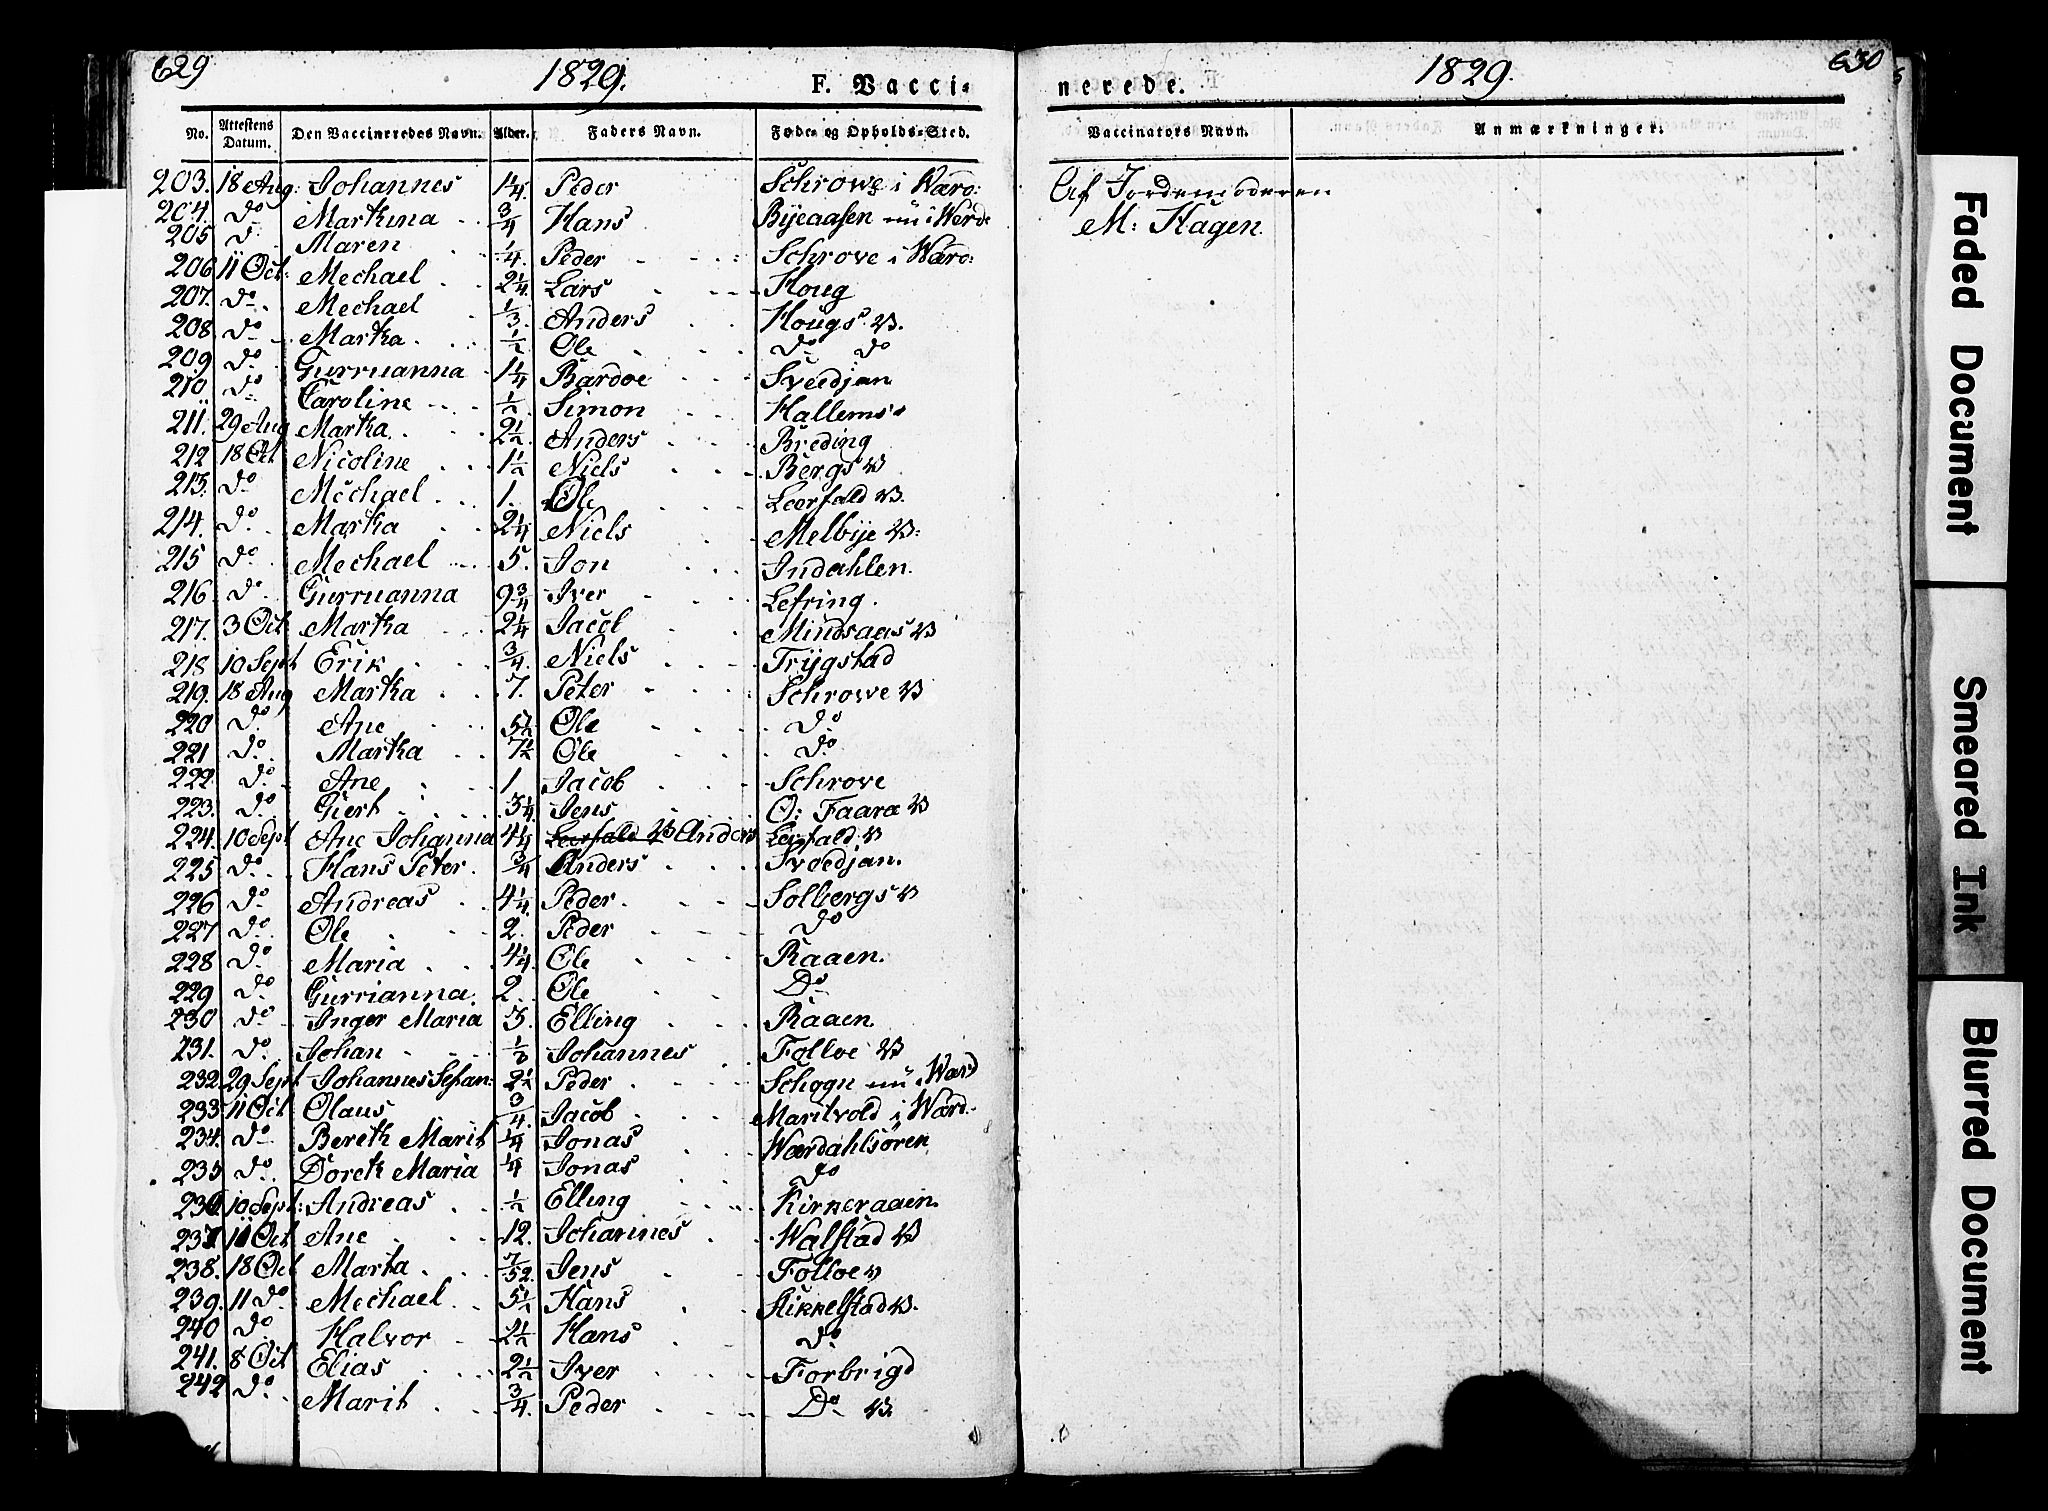 629
1829.
F. Vacci-
No. Attestens Datum. Den Vaccineredes Navn. Alder. Faders Navn. Føde- og Opholds-Sted.
203. 18 Aug: Johannes 1¼ Peder Schrowe i Væro:
204. do Markina ¾ Hans Byeaasen nu i Werd:
205 d. Maren ¼ Peder Schrove i Wæro:
206 11 Oct: Mechael 2¼ Lars Houg
207. do Mechael ⅓ Anders Hougs V.
208 do Marka ½ Ole do do
209 do Gurruanna 1¼ Bardoe Sveedjan
210 do Caroline ½ Simon Hallems
211. 29 Aug Marka 2½ Anders Breding
212 18 Oct Nicoline 1½ Niels Bergs V
213. do Mechael 1. Ole Leerfald V.
214. do Marka 2¼ Niels Melbye V:
215 do Mechael 5. Jon Indahlen.
216 do Gurruanna 9¾ Iver Lefring.
217. 3 Oct Marka 2¼ Jacob Mindsaas V
218 10 Sept Erik ¾ Niels Trygstad
219. 18 Aug Marka 7. Peter Schrowe V
220 do Ane 5½ Ole do
221 do Marka 7½ Ole do
222. do Ane 1 Jacob Schrove
223. do Giert 3¼ Jens O: Faaræ V
224. 10 Sept Ane Johanna 4¼ Leerfald V Anders Leerfald V
225 do Hans Peter ¾ Anders Sveedjan.
226 do Andreas 4¼ Peder Solbergs V
227 do Ole 2. Peder do
228 do Maria 4¼ Ole Raaen.
229 do Gurrianna. 2 Ole Do
230 do Inger Maria 5. Elling Raaen
231. do Johan Johannes Folloe V
232 29 Sept Johannes Sefan: 2½ Peder Schogn nu i Wærd
233 11 Oct Olaus ¾ Jacob Maritvold i Wærd.
234. do Bereth Marit ¼ Jonas Wærdahlsören
235 do Doreth Maria ¼ Jonas do
236 10 Sept: Andreas ½ Elling Kirkeraaen.
237 11 Oct Ane 12. Johannes Walstad V
238. 18 Oct Marta 7/52. Jens Folloe V
239. 11 do Mechael 5½ Hans Stikkelstad V.
240 do Halvor 2½ Hans do
241. 8 Oct Elias 2½ Iver Forbrigd
242 do Marit ¾ Peder Do V.
nerede.
1829.
630
Vaccinators Navn. Anmærkninger.
Af Jordemoderen
M: Hagen.
Faded Document
Smeared Ink
Blurred Document